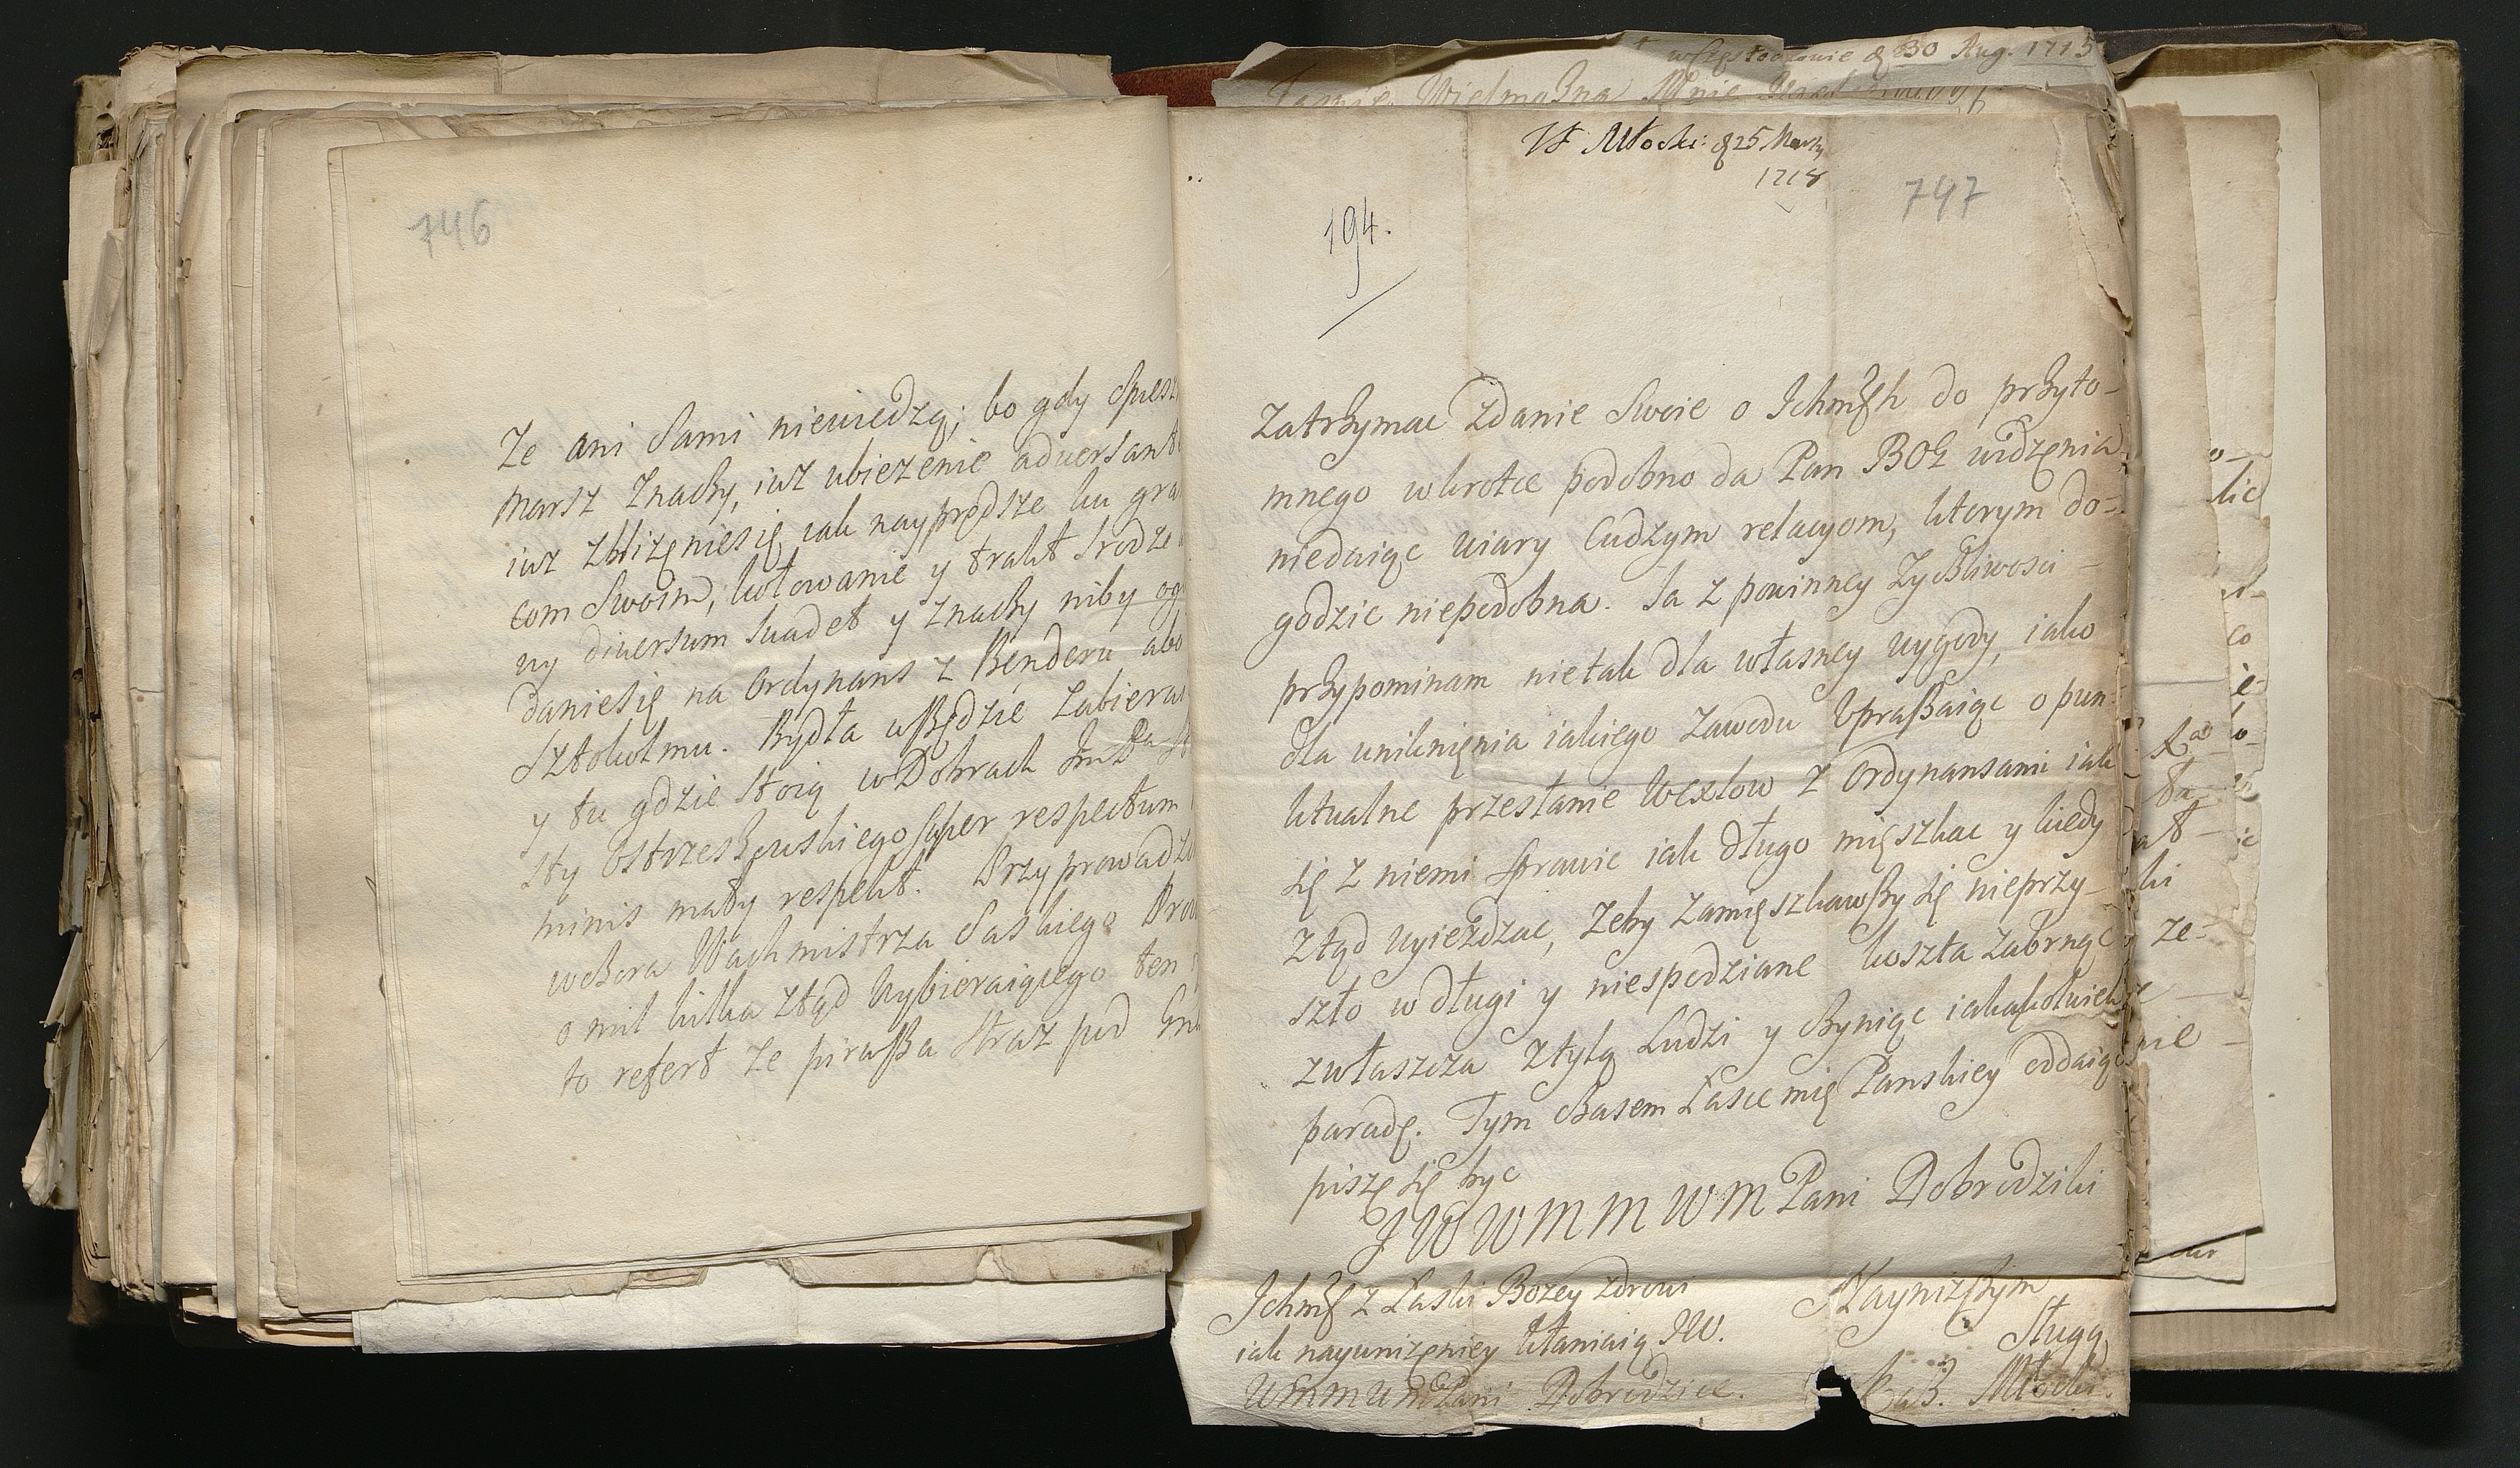 746
Ze ani Sami niewiedzą; bo gdy Spiesz
Marsz znaczy, iuz ubiezenie adversant
iuz zbliżęniesię iak nayprędsze ku gra
com Swoim, kotowanie y trakt Srodze
ny diversum suadet y znaczy niby og
daniesię na Ordynans z Benderu abo
Sztokolmu. Bydła wszędzie zabiera
y tu gdzie Stoią w Dobrach
sty Ostrzeszewskiego super respectum
minis mały respekt. Przyprowadz
wczora Wachmistrza Saskiego Pro
o mil kilka ztąd wybieraiącego ten
to refert ze pirasza Straz pod
w Częstochowie d 30 Aug. 1715
Jasnie Wielmożna Mnie
W Młocki: d 25 Marty
1718
194.
747
Zatrzymac zdanie Swoie o Ichmściach do przyto-
mnego wkrotce podobno da Pan BOG widzęnia
niedaiąc wiary Cudzym relacyom, ktorym do-
godzic niepodobna. Ja z powinney zyczliwosci
przypominam nietak dla własney wygody, iako
dla uniknięnia iakiego zawodu upraszaiąc o pun-
ktualne przesłanie Wexlow z Ordynansami iak
się z niemi sprawic iak długo mięszkac y kiedy
ztąd wyiezdzac, zeby zamięszkawszy się nieprzy-
szło w długi y niespodziane koszta zabrnąc
zwłaszcza ztylą Ludzi y czyniąc iakąkolwiek
paradę. Tym czasem Łasce mię Panskiey oddaiąc
piszę się byc
J W W M M W M Pani Dobrodziki
Ichmść z Łaski Bozey zdrowi
iak nayunizęniey kłaniaią JW.
WMMWMPani Dobrodzice.
Naynizszym
Sługą
Kaz. Młocki.